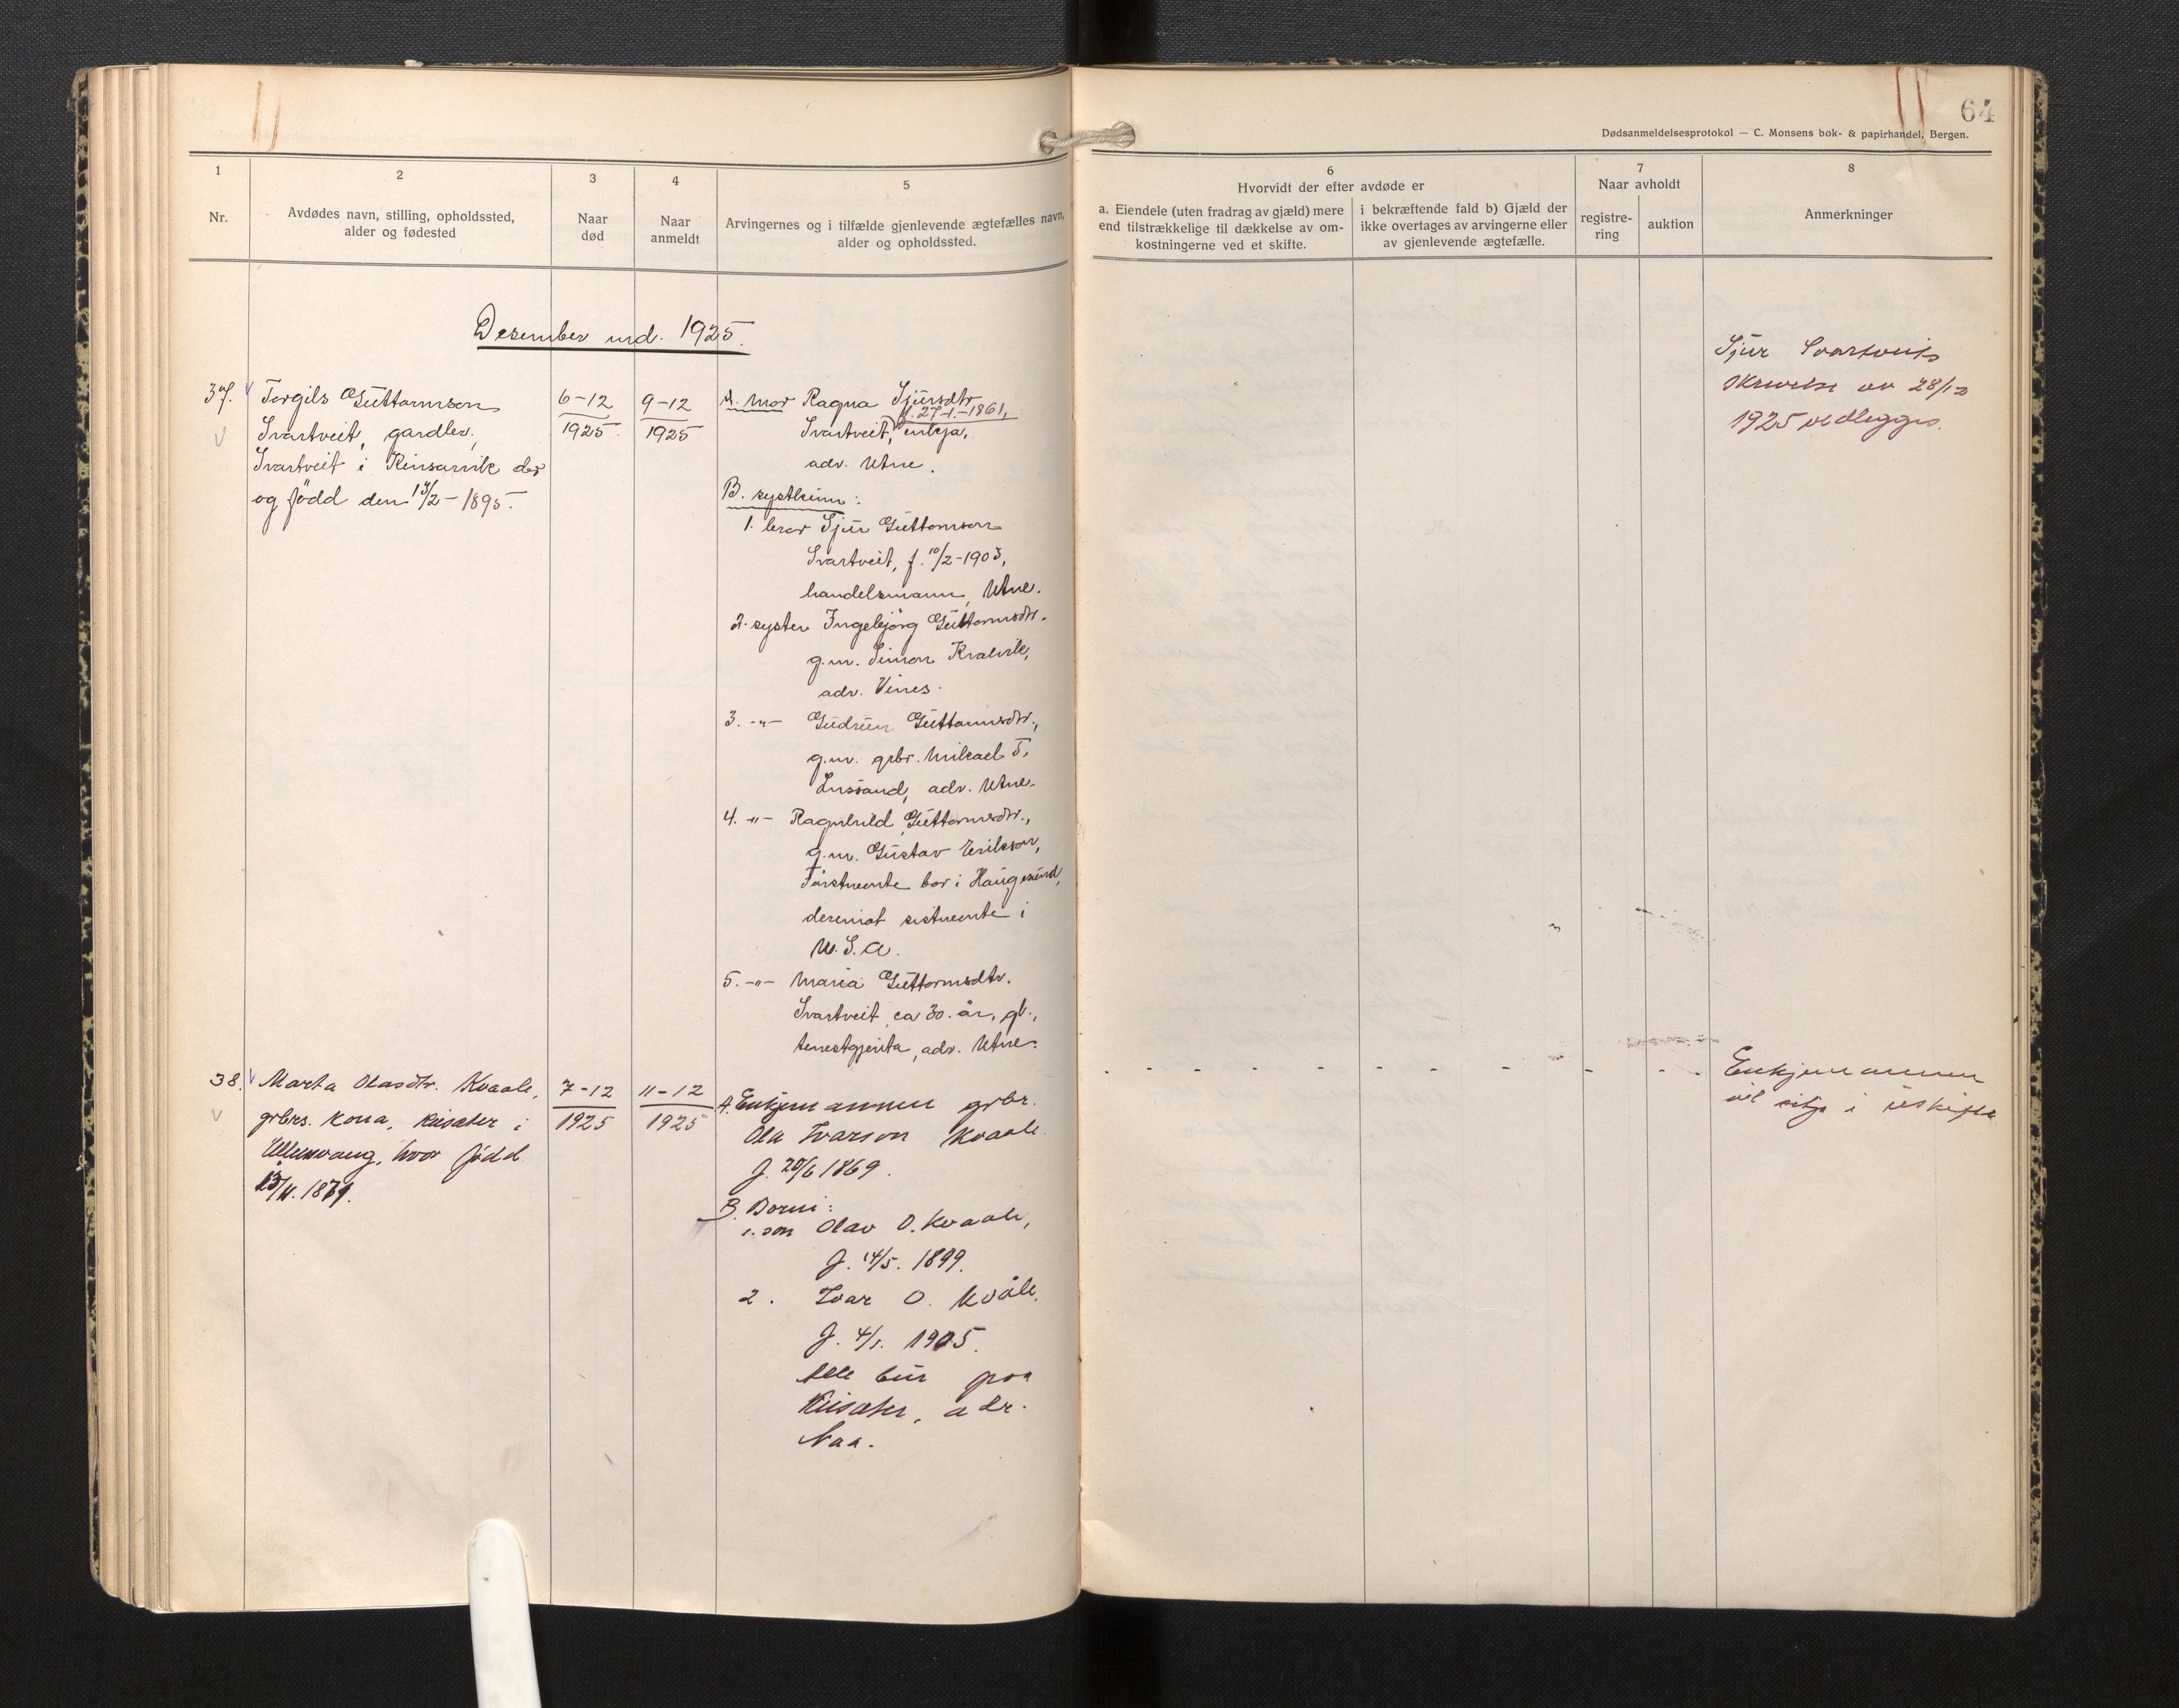 64
Dødsanmeldelsesprotokol — C. Monsens bok- & papirhandel, Bergen.
1
Nr.
2
Avdødes navn, stilling, opholdssted,
alder og fødested
3
Naar
død
4
Naar
anmeldt
5
Arvingernes og i tilfælde gjenlevende ægtefælles navn,
alder og opholdssted.
6
Hvorvidt der efter avdøde er
a. Eiendele (uten fradrag av gjæld) mere
end tilstrækkelige til dækkelse av om-
kostningerne ved et skifte.
i bekræftende fald b) Gjæld der
ikke overtages av arvingerne eller
av gjenlevende ægtefælle.
7
Naar avholdt
registre-
ring
auktion
8
Anmerkninger
Desember md. 1925.
37.
Torgils Guttormson
Svartveit, gardbr.,
Svartveit i Kinsarvik der
og född den 13/2 - 1895.
6-12
1925.
9-12
1925
A. mor Ragna Sjursdtr
f. 27-1.-1861,
Svartveit, enkja,
adr. Utne.
B. systkin:
1. bror Sjur Guttormson
Svartveit, f. 10/2-1903,
handelsmann, Utne.
2. syster Ingebjörg Guttormsdtr.
g.m. Simon Kralvik,
adr. Vines.
3. -"- Gudrun Guttormsdtr.,
g.m. grbr. Mikael T.
Lussand, adr. Utne.
4. -"- Ragnhild Guttormsdtr.,
g.m. Gustav Erikson,
Förstnemte bor i Haugesund,
derimot sistnemte i
U.S.A.
5. -"- Maria Guttormsdtr.
Svartveit, ca 30. år, gb.,
tenestgjenta, adr. Utne.
Sjur Svartveits
skrivelse av 28/12
1925 vedlegges.
38.
Marta Olasdtr. Kvaale,
grbrs. kona, Reisæter i
Ullensvang, hvor född
13/11. 1871.
7-12
1925
11-12
1925
A. Enkjemannen grbr.
Ola Ivarson Kvaale.
f. 20/6 1869.
B. Borni:
1. son Olav O. Kvaale,
f. 14/5. 1899.
2. Ivar O. Kvåle.
f. 4/1. 1905.
Alle bur paa
Reisæter, adr.
Naa.
- - - - - - - - - -
Enkjemannen
vil sitja i uskifte